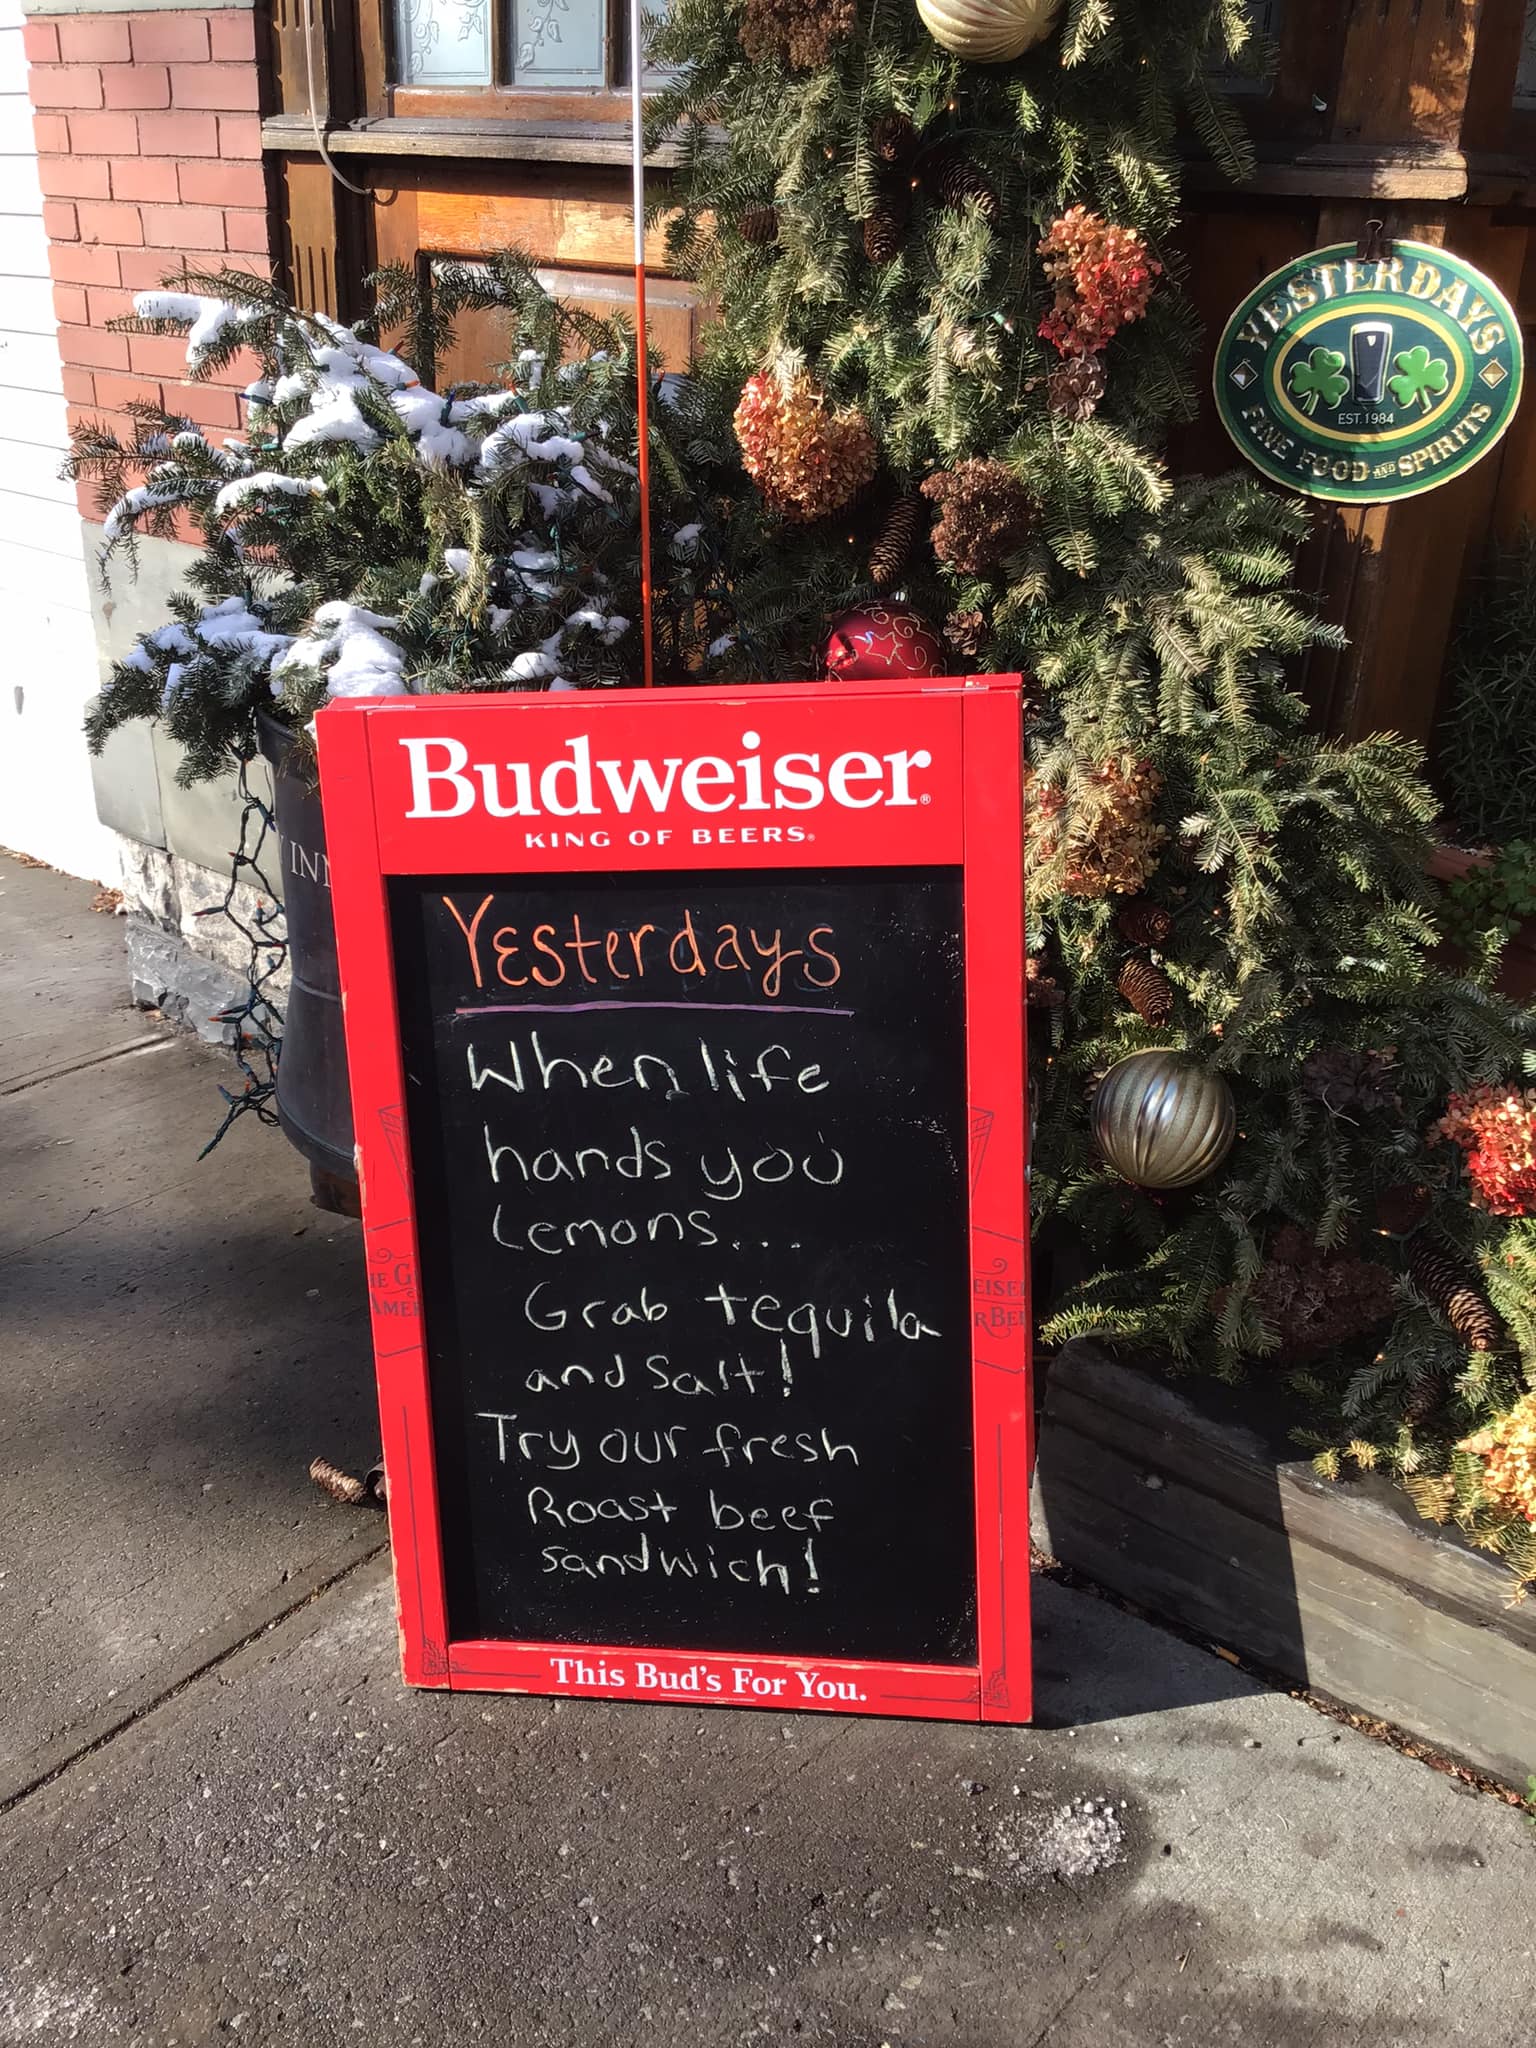 YESTERDAYS
EST. 1984
FINE FOOD AND SPIRITS
Budweiser®
KING OF BEERS®
Yesterdays
When life
hands you
Lemons...
Grab tequila
and Salt!
Try our fresh
Roast beef
sandwich!
This Bud's For You.